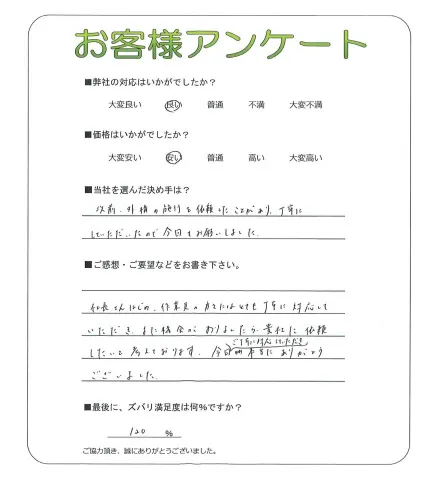 お客様アンケート
■弊社の対応はいかがでしたか?
大変良い 良い 普通 不満 大変不満
■価格はいかがでしたか?
大変安い 安い 普通 高い 大変高い
■当社を選んだ決め手は?
以前、外構の施行を依頼したことがあり、丁寧に
していただいたので今回もお願いしました。
■ご感想・ご要望などをお書き下さい。
社長さんはじめ、作業員の方々にはとても丁寧に対応して
いただき、また機会がありましたら貴社に依頼
したいと考えております。今回
ご丁寧に対応していただき
本当にありがとう
ございました。
■最後に、ズバリ満足度は何%ですか?
120 %
ご協力頂き、誠にありがとうございました。